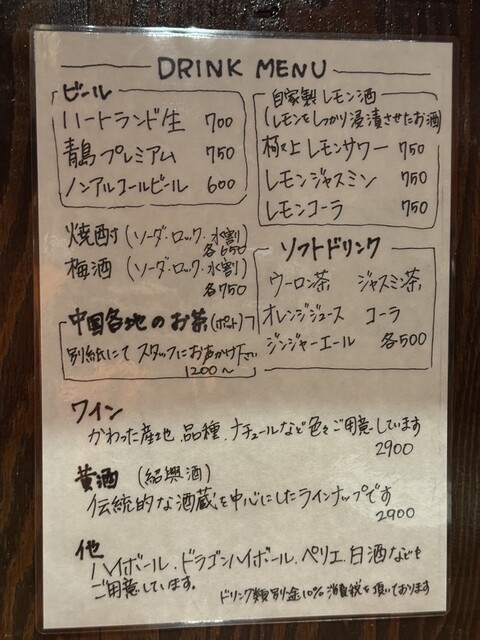 DRINK MENU
ビール
ハートランド生 700
青島プレミアム 750
ノンアルコールビール 600
自家製レモン酒
(レモンをしっかり浸漬させたお酒)
極上レモンサワー 750
レモンジャスミン 750
レモンコーラ 750
焼酎(ソーダ・ロック・水割)
各650
梅酒(ソーダ・ロック・水割)
各750
中国各地のお茶(ポット)
別紙にてスタッフにお声かけ下さい
1200〜
ソフトドリンク
ウーロン茶 ジャスミン茶
オレンジジュース コーラ
ジンジャーエール 各500
ワイン
かわった産地、品種、ナチュールなど色々ご用意しています
2900
黄酒(紹興酒)
伝統的な酒蔵を中心にしたラインナップです
2900
他
ハイボール、ドラゴンハイボール、ペリエ、白酒なども
ご用意しています。
ドリンク類別途10%消費税を頂いております